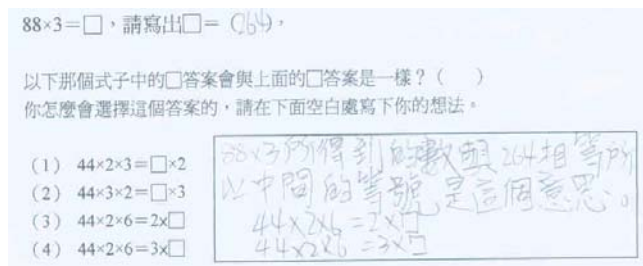 88×3=□，請寫出□= (264)，
以下那個式子中的□答案會與上面的□答案是一樣？（ ）
你怎麼會選擇這個答案的，請在下面空白處寫下你的想法。
(1) 44×2×3=□×2
(2) 44×3×2=□×3
(3) 44×2×6=2×□
(4) 44×2×6=3×□
88×3所得到的數與264相等所
以中間的等號是這個意思。
44×2×6=2×□
44×2×6=3×□